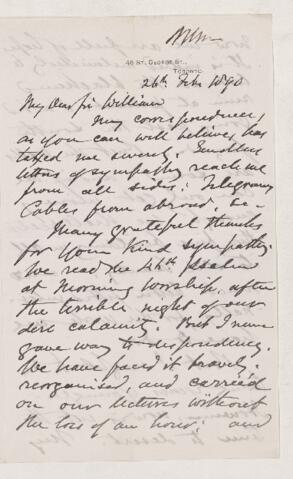 48 ST. GEORGE ST.,
TORONTO.
26th Feb 1890
My dear Sir William
My correspondence,
as you can well believe, has
taxed me severely. Endless
letters of sympathy reach me
from all sides: Telegrams
Cables from abroad, &c-
Many grateful thanks
for your kind sympathy.
We read the 46th Psalm
at Morning Worship, after
the terrible night of our
dire calamity. But I never
gave way to despondency.
We have faced it bravely,
reorganised, and carried
on our lectures without
the loss of an hour: and